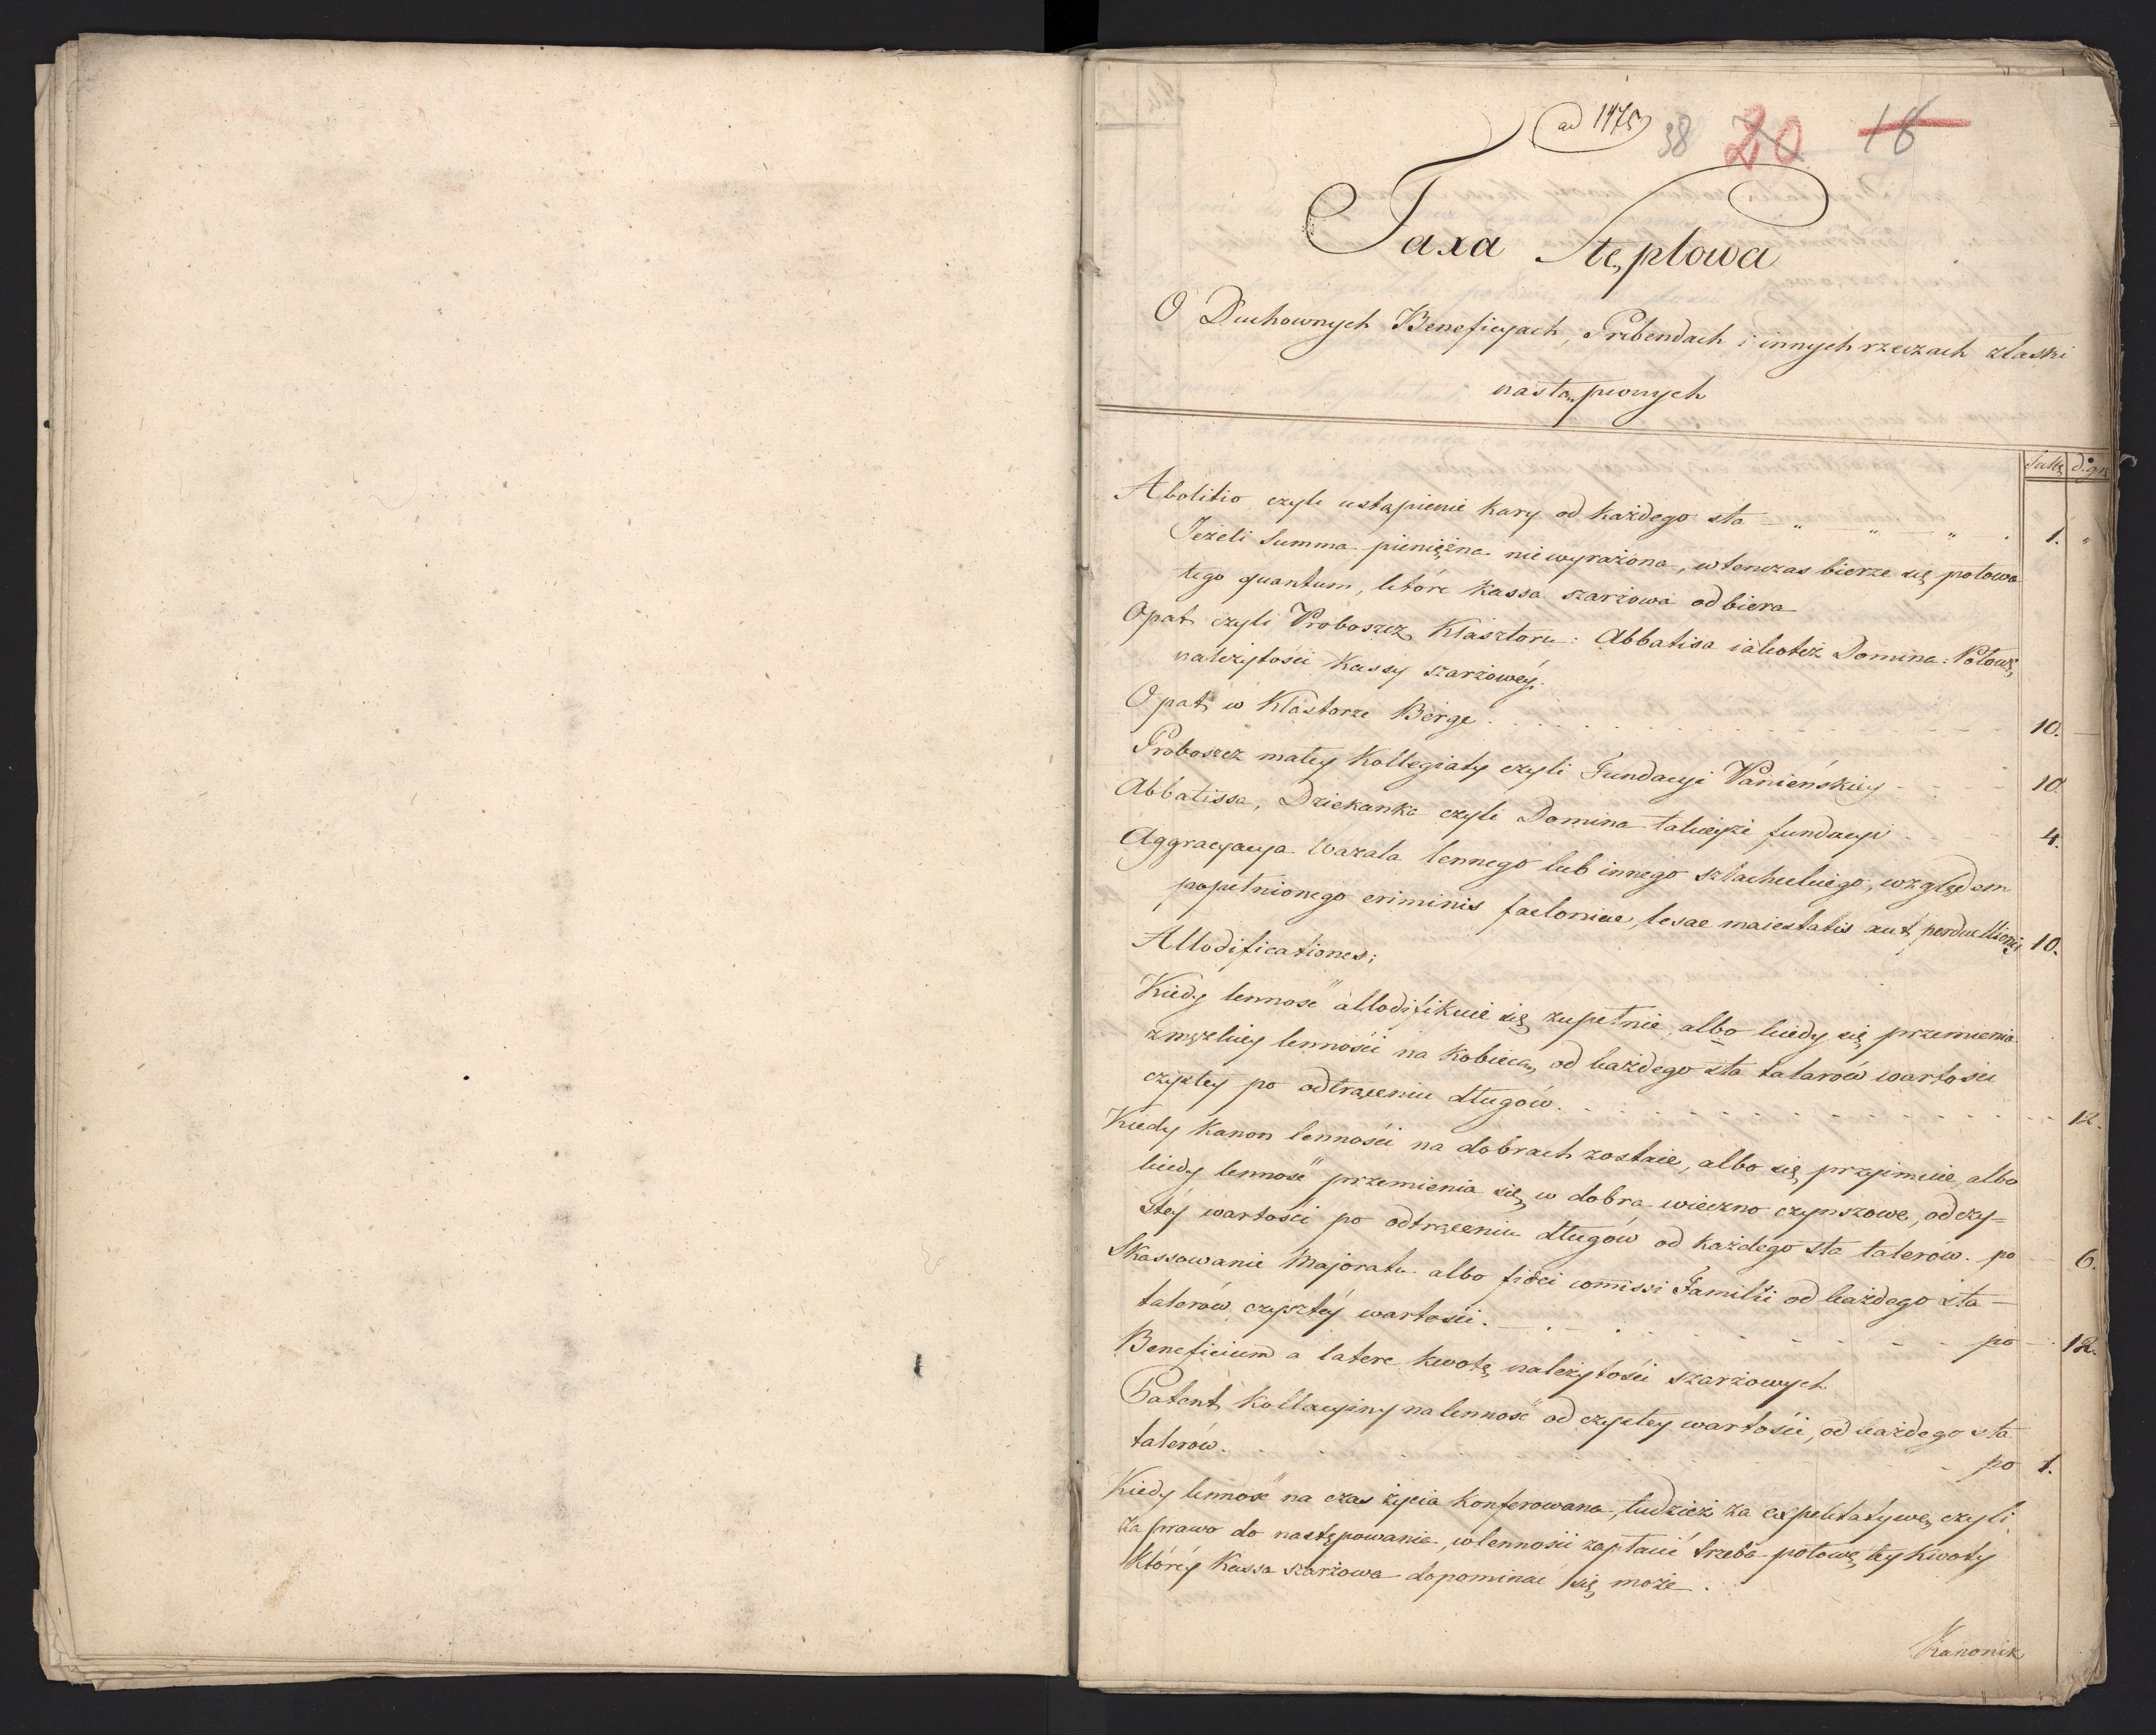 ad 1475
38 20 18
Taxa Stęplowa
O Duchownych Beneficyach, Prebendach i innych rzeczach złaski
nastąpionych
Talr. d. gr.
Abolitio, czyli ustąpienie kary od każdego sta - " - " - " . 1. "
Jeżeli Summa pieniężna nie wyrażona, wtenczas bierze się połowa
tego quantum, które Kassa szarżowa odbiera
Opat czyli Proboszcz Klasztoru: Abbatisa iakoteż Domina: Połowę
należytości Kassy szarżowéy.
Opat w Klasztorze Berge . . . 10. —
Proboszcz małey Kollegiaty czyli Fundacyi Panieńskiey - - - - 10.
Abbatissa, Dziekanka czyli Domina takieyże fundacyi - - - 4.
Aggracyacya Wazala lennego lub innego szlacheckiego, względem
popełnionego criminis faeloniae, lesae maiestatis aut perduellionis 10.
Allodificationes;
Kiedy lenność allodifikuie się zupełnie, albo kiedy się przemienia
zmęzkiey lenności na kobiecą, od każdego sta talarów wartości
czystey po odtrąceniu długów. - - - 12.
Kiedy Kanon lenności na dobrach zostaie, albo się przyimuie, albo
kiedy lenność przemienia się w dobra wieczno czynszowe, od czy=
stéy wartości po odtrąceniu długów od każdego sta talerów. po - 6.
Skassowanie Majoratu albo fidei com̄issi Familii od każdego sta —
talerów czysztéy wartości. - - - po - 12.
Beneficium a latere kwotę należytości szarżowych
Patent Kollacyiny na lenność od czystey wartości, od każdego sta
talerów. - - - po 1.
Kiedy lenność na czas życia konferowana, tudzież za expektatywę, czyli
za prawo do następowania, wlenności zapłacić trzeba połowę tey kwoty
Któréy Kassa szarżowa dopominać się może.
Kanonik